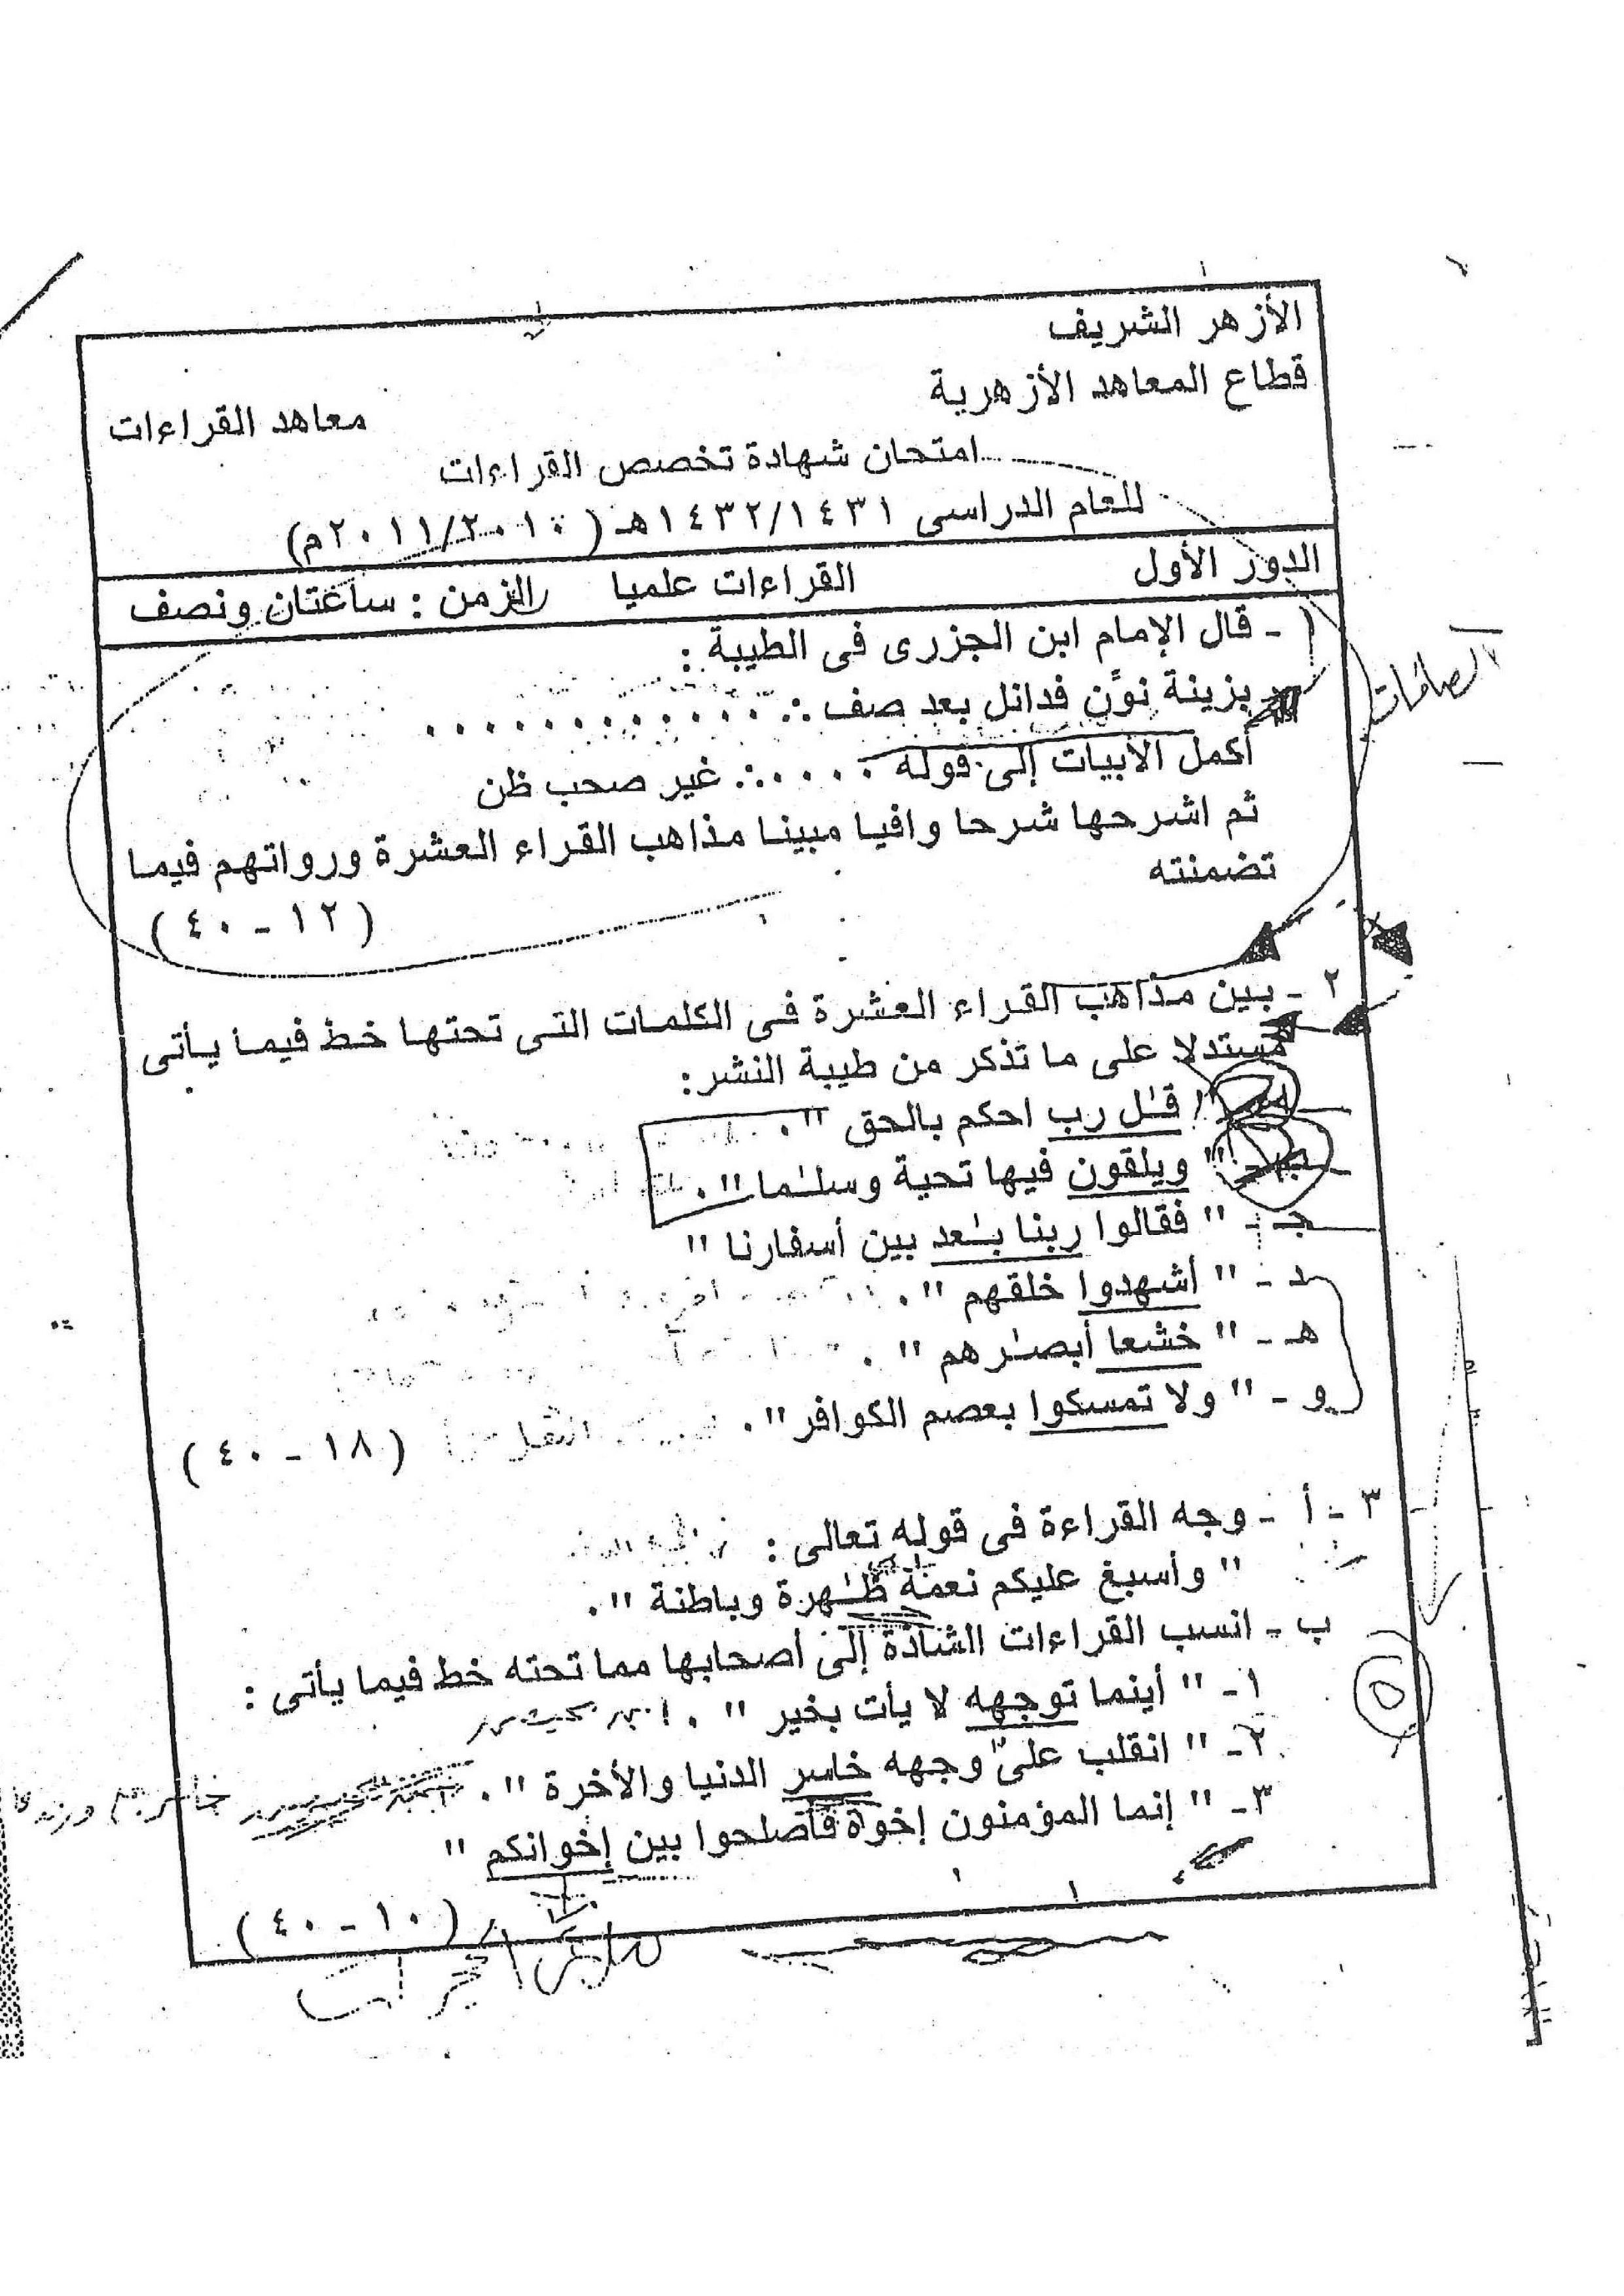 الأزهر الشريف
قطاع المعاهد الأزهرية
معاهد القراءات
امتحان شهادة تخصص القراءات
للعام الدراسى ١٤٣٢/١٤٣١هـ (٢٠١١/٢٠١٠م)
الدور الأول القراءات علميا الزمن : ساعتان ونصف
١ - قال الإمام ابن الجزرى فى الطيبة :
بزينة نوِّن فدانل بعد صف ∴ ............
أكمل الأبيات إلى قوله .... ∴ غير صحب ظن
ثم اشرحها شرحا وافيا مبينا مذاهب القراء العشرة ورواتهم فيما
تضمنته
(١٢ - ٤٠)
٢ - بين مذاهب القراء العشرة فى الكلمات التى تحتها خط فيما يأتى
مستدلا على ما تذكر من طيبة النشر:
" قٰل رب احكم بالحق ".
ب - " ويلقون فيها تحية وسلٰما ".
جـ - " فقالوا ربنا بٰعد بين أسفارنا "
د - " أشهدوا خلقهم ".
هـ - " خشعا أبصٰرهم ".
و - " ولا تمسكوا بعصم الكوافر ".
(١٨ - ٤٠)
٣ - أ - وجه القراءة فى قوله تعالى :
" وأسبغ عليكم نعمة ظٰهرة وباطنة ".
ب - انسب القراءات الشاذة إلى أصحابها مما تحته خط فيما يأتى :
١- " أينما توجهه لا يأت بخير ".
٢- " انقلب علىٰ وجهه خاسر الدنيا والأخرة ".
٣- " إنما المؤمنون إخوة فأصلحوا بين إخوانكم "
(١٠ - ٤٠)
الصافات
٥